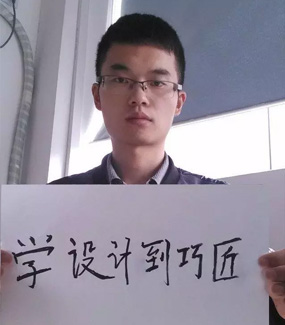 学设计到巧匠